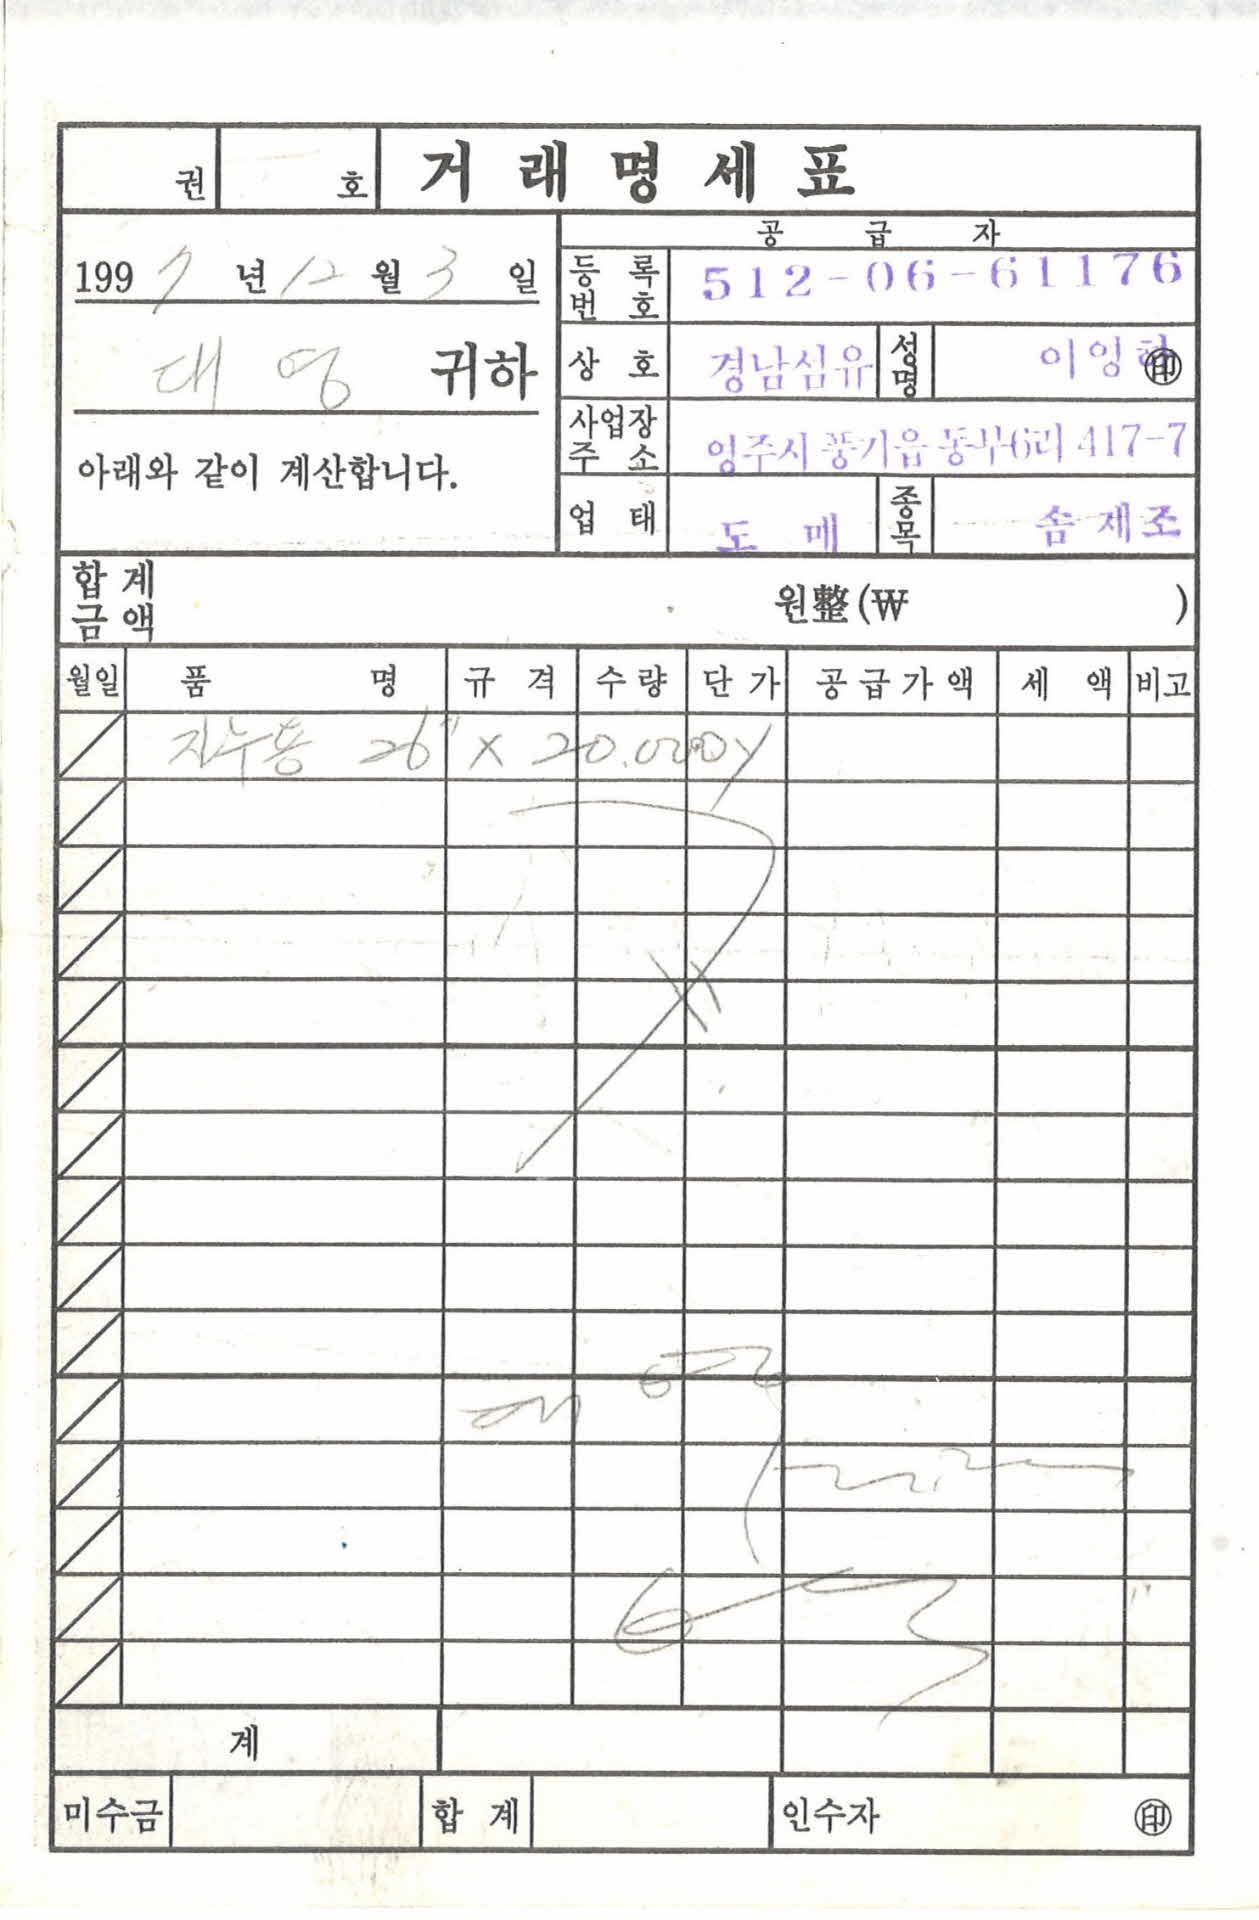 권 호 거래명세표
공급자
1997년 12월 3일
대영 귀하
아래와 같이 계산합니다.
등록번호 512-06-61176
상호 경남섬유 성명 이영 印
사업장주소 영주시 풍기읍 동부6리 417-7
업태 도매 종목 솜제조
합계금액 원整(₩ )
월일 품명 규격 수량 단가 공급가액 세액 비고
26" X 20.000y
계
미수금 합계 인수자 印